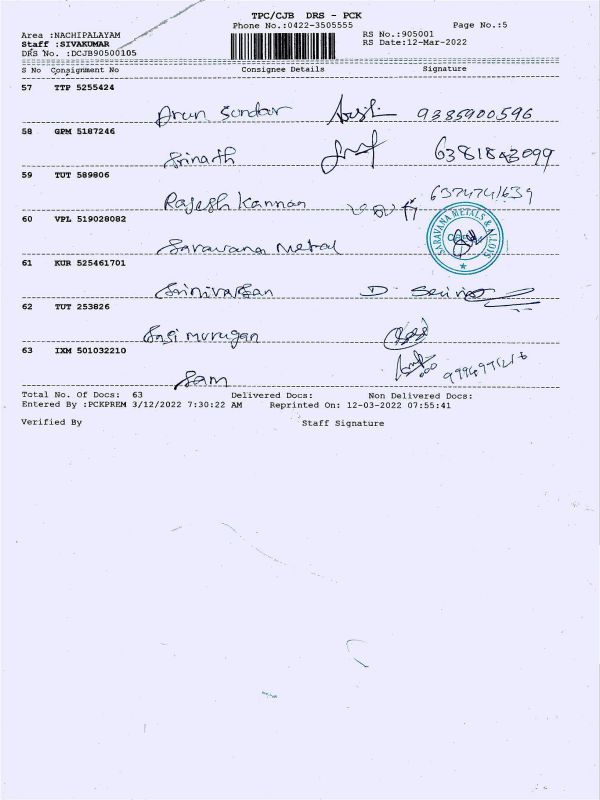 TPC/CJB DRS - PCK
Phone No.:0422-3505555
Page No.:5
Area :NACHIPALAYAM
RS No.:905001
Staff :SIVAKUMAR
RS Date:12-Mar-2022
DRS No. :DCJB90500105
S No Consignment No Consignee Details Signature
57 TTP 5255424
Arun Sundar 9385900596
58 GPM 5187246
Srinath 6381843099
59 TUT 589806
Rajesh Kannan
60 VPL 519028082
Saravana Metal
SARAVANA METALS & ALLOYS
61 KUR 525461701
Srinivasan D.
62 TUT 253826
Sasi murugan
63 IXM 501032210
Sam
Total No. Of Docs: 63 Delivered Docs: Non Delivered Docs:
Entered By :PCKPREM 3/12/2022 7:30:22 AM Reprinted On: 12-03-2022 07:55:41
Verified By Staff Signature